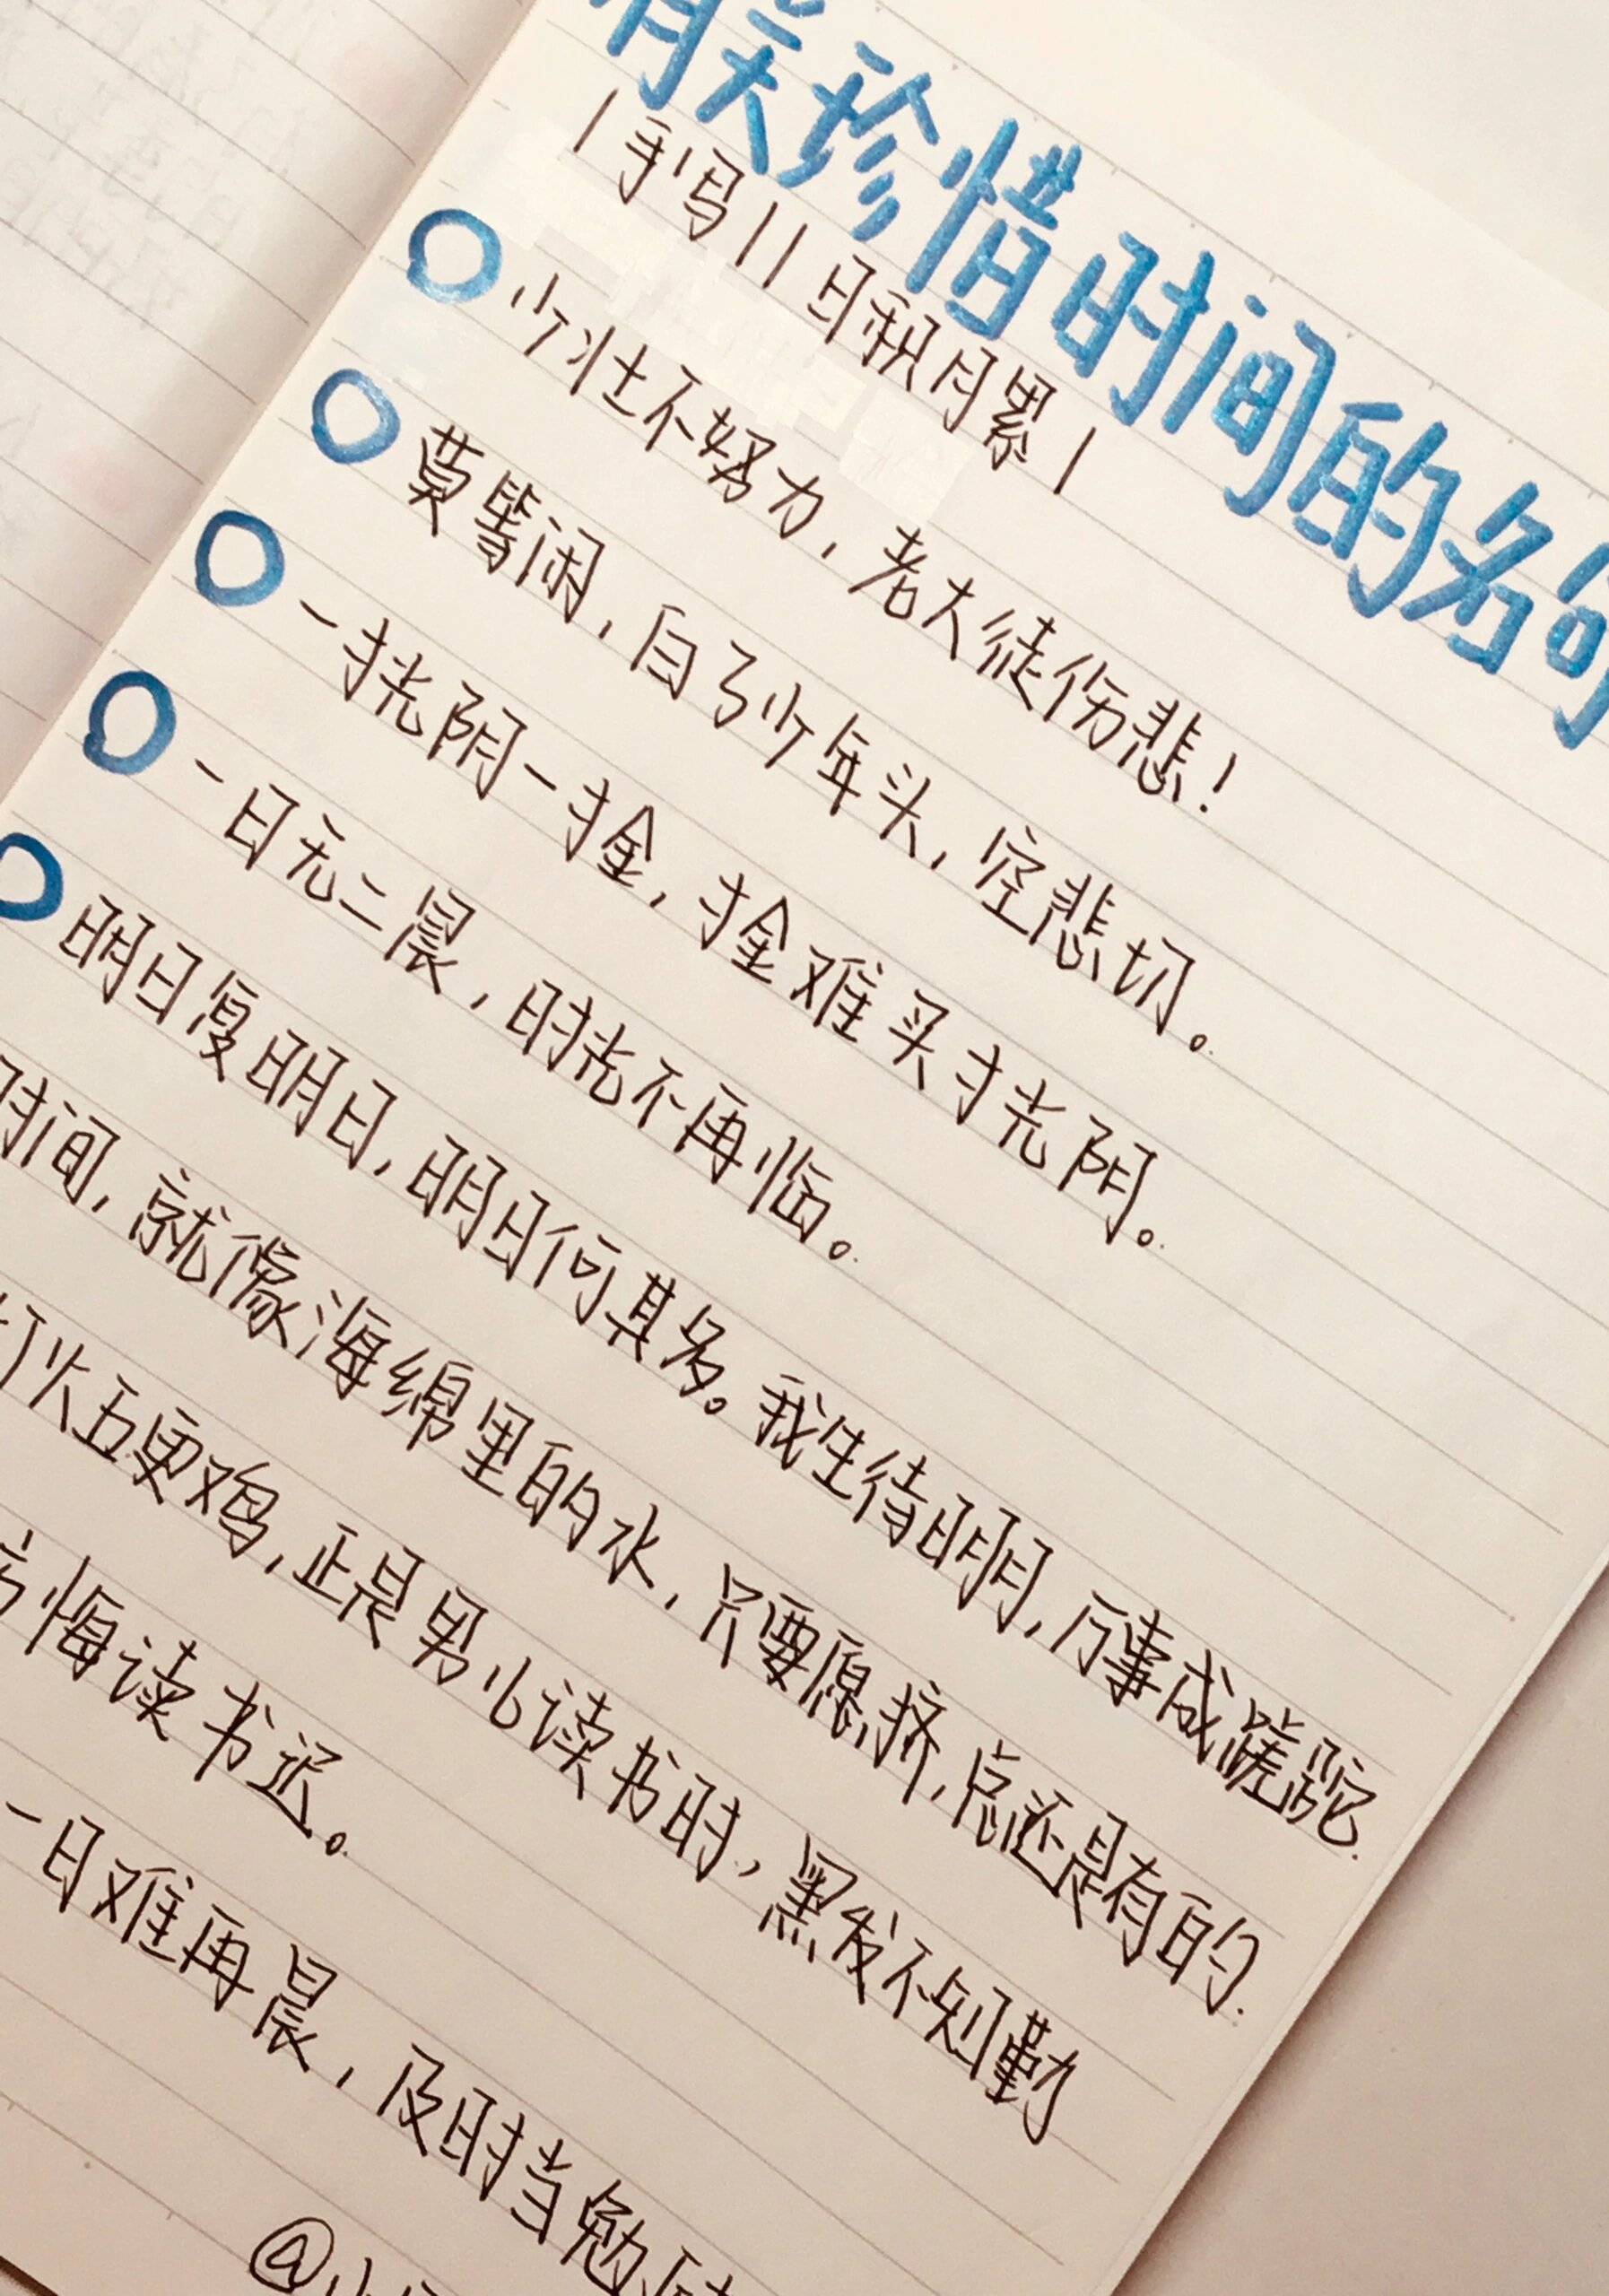 有关珍惜时间的名句
|手写||日积月累|
少壮不努力,老大徒伤悲!
莫等闲,白了少年头,空悲切。
一寸光阴一寸金,寸金难买寸光阴。
一日无二晨,时光不再临。
明日复明日,明日何其多。我生待明日,万事成蹉跎.
时间,就像海绵里的水,只要愿挤,总还是有的.
灯火五更鸡,正是男儿读书时,黑发不知勤
方悔读书迟。
一日难再晨,及时当勉
@小